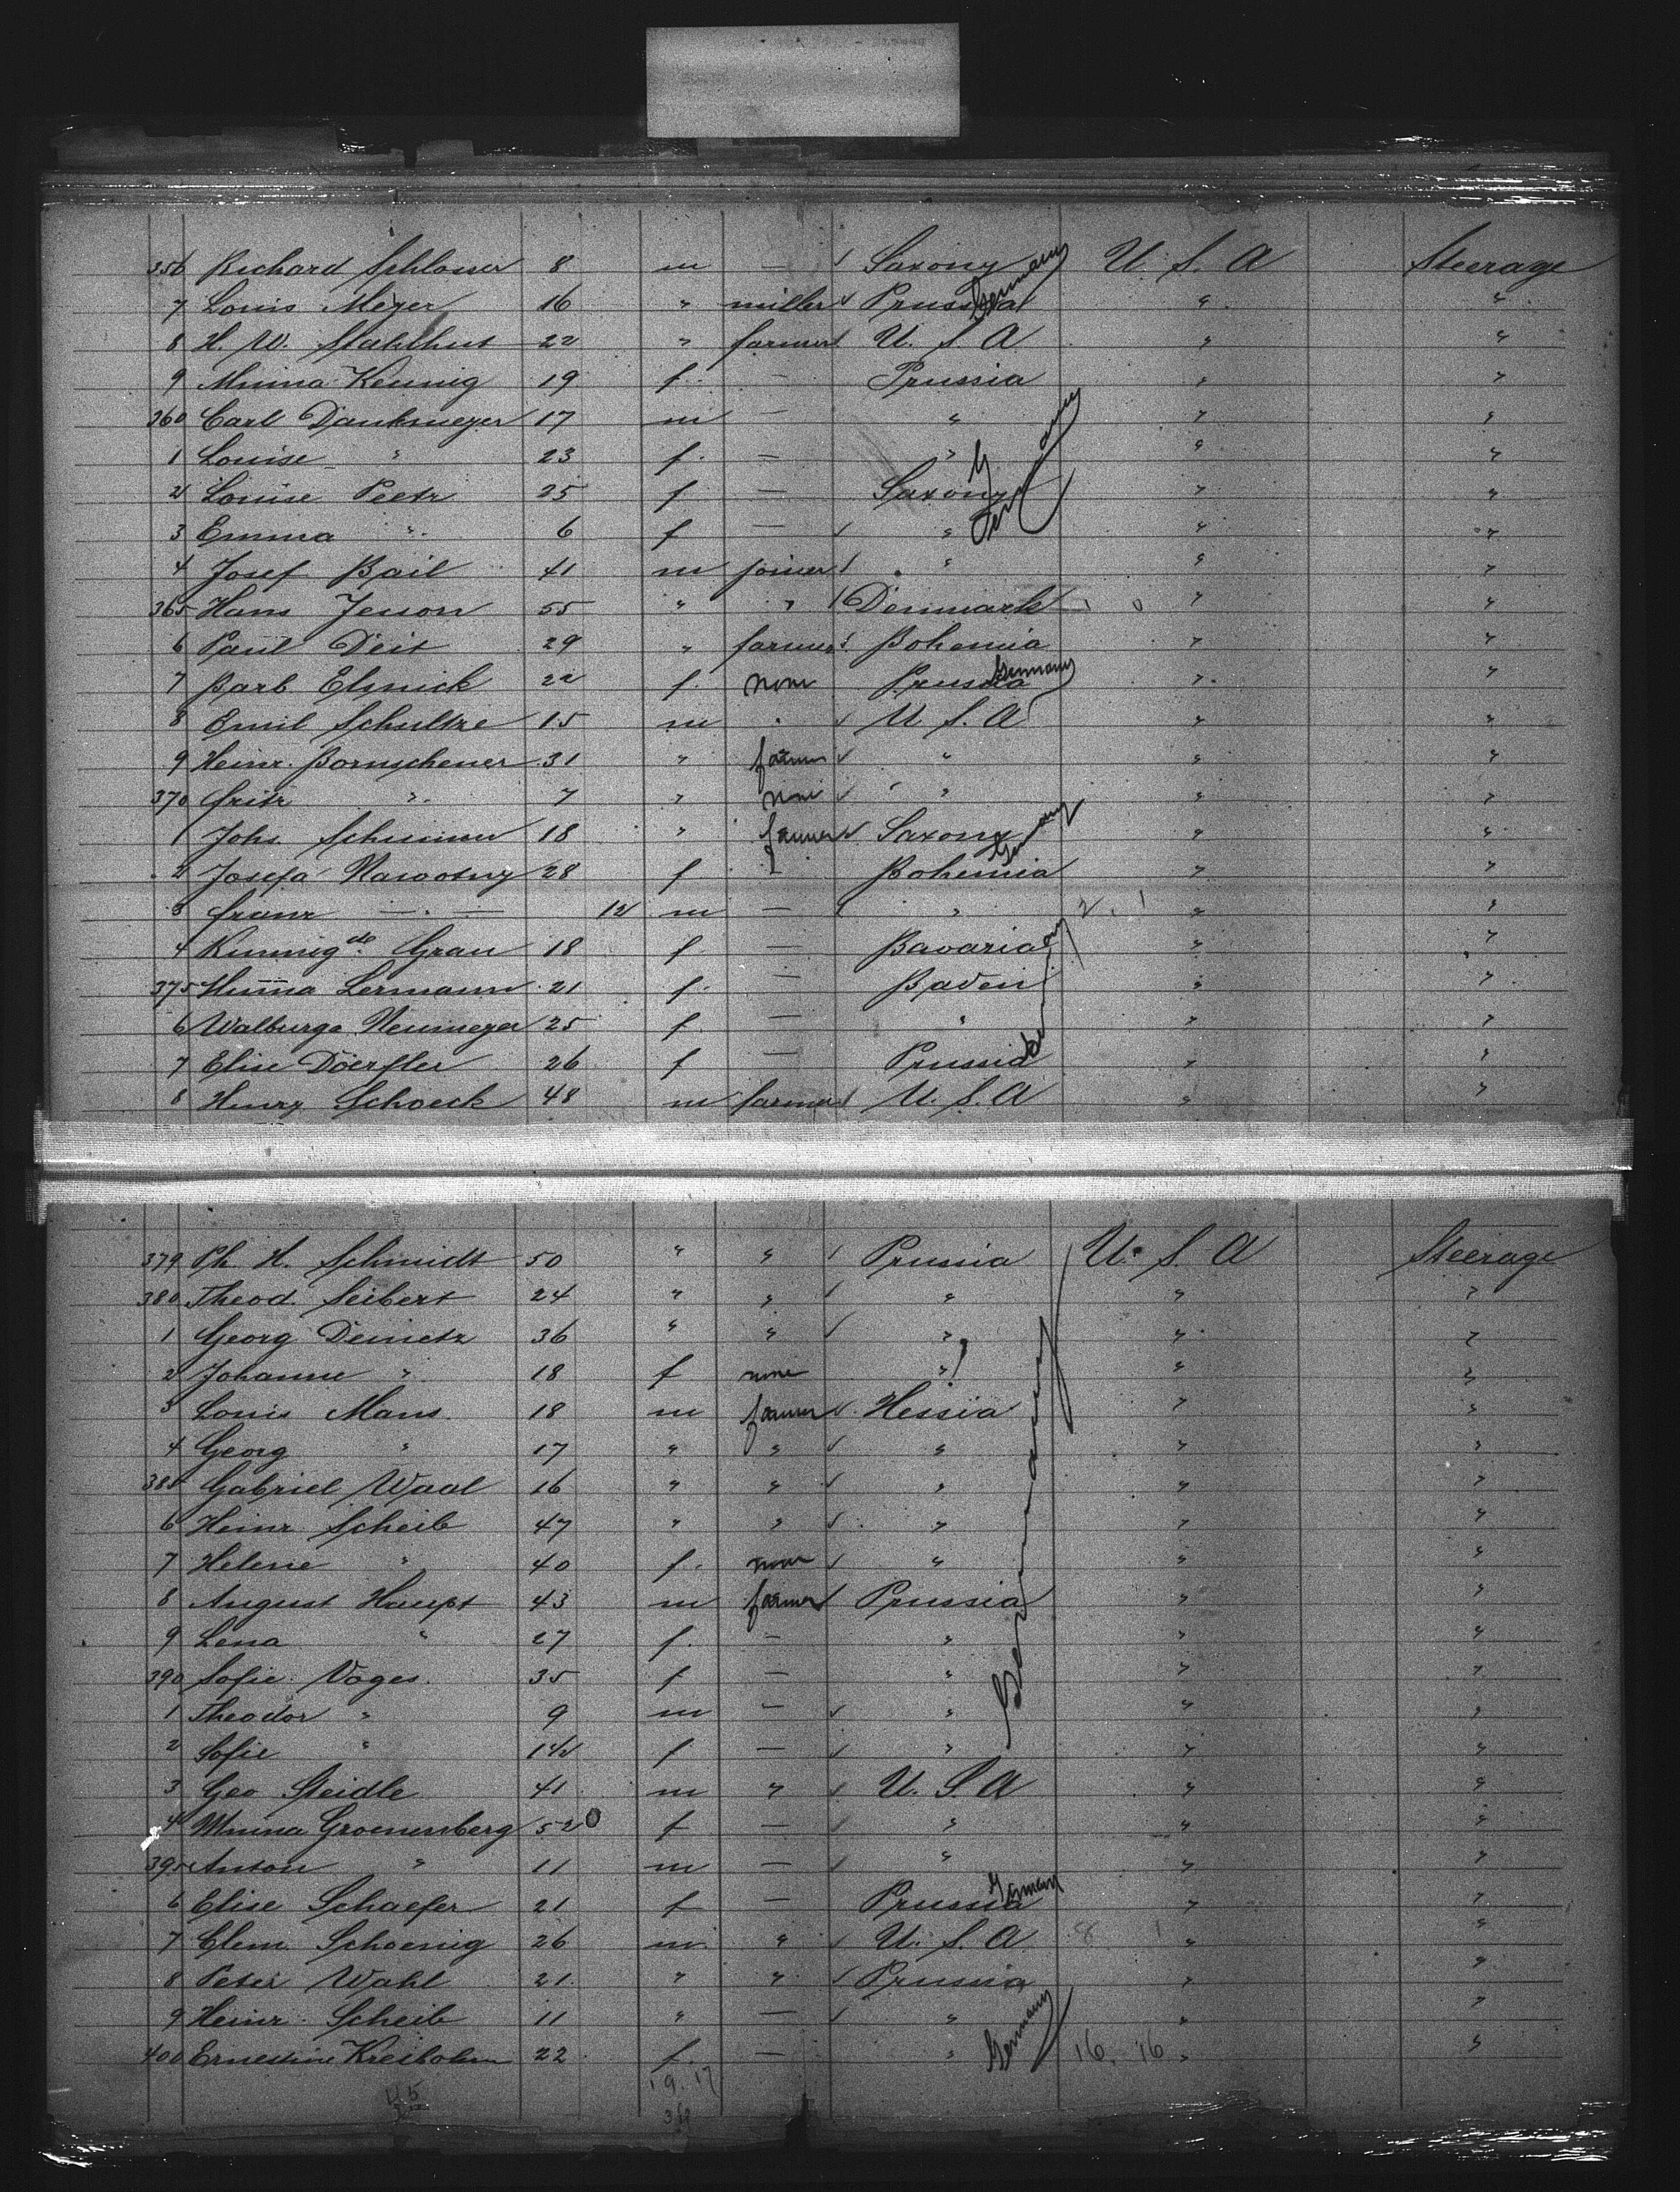 356 Richard Schlosser 8 m — Saxony U. S. A Steerage
7 Louis Meyer 16 " miller Prussia Germany " "
8 H. W. Stahlhut 22 " farmer U. S. A " "
9 Minna Kennig 19 f. — Prussia " "
360 Carl Dankmeyer 17 m — " " "
1 Louise " 23 f. — " " "
2 Louise Peetz 25 f — Saxony Germany " "
3 Emma " 6 f — " " "
4 Josef Bail 41 m joiner " " "
365 Hans Jenson 55 " " Denmark " "
6 Paul Deit 29 " farmer Bohemia " "
7 Barb Elsnick 22 f. none Prussia Germany " "
8 Emil Schultze 15 m " U. S. A " "
9 Heinr. Bornschener 31 " farmer " " "
370 Fritz " 7 " none " " "
1 Johs. 18 " farmer Saxony Germany " "
2 Josefa Nawotny 28 f — Bohemia " "
3 Franz — " — 12 m — " 2. 1 " "
4 Kunnigde Grau 18 f — Bavaria " "
375 Lermann 21 f. — Baden " "
6 Walburga Neumeyer 25 f — " " "
7 Elise Döerfler 26 f — Prussia Germany " "
8 Henry Schoeck 48 m farmer U. S. A " "
379 Ph. H. Schmidt 50 " " Prussia U. S. A Steerage
380 Theod. Seibert 24 " " " " "
1 Georg Demetz 36 " " " " "
2 Johanne " 18 f none " " "
3 Louis Mans 18 m farmer Hessia " "
4 Georg " 17 " " " " "
385 Gabriel Waal 16 " " " " "
6 Heinr Scheib 47 " " " " "
7 Helene " 40 f. none " " "
8 August Haupt 43 m farmer Prussia " "
9 Lena " 27 f. — " " "
390 Sofie Voges 35 f — " " "
1 Theodor " 9 m — " " "
2 Sofie " 1½ f — " Germany " "
3 Geo Steidle 41 m " U. S. A " "
4 Minna Groenenberg 52 0 f — " " "
395 Anton " 11 m — " " "
6 Elise Schaefer 21 f — Prussia Germany " "
7 Clem. Schoenig 26 m. " U. S. A 8 1 " "
8 Peter Wahl 21 " " Prussia " "
9 Heinr. Scheib 11 " — " " "
400 Ernestine Kreibohm 22 f. — " Germany 16. 16 " "
19. 17
45